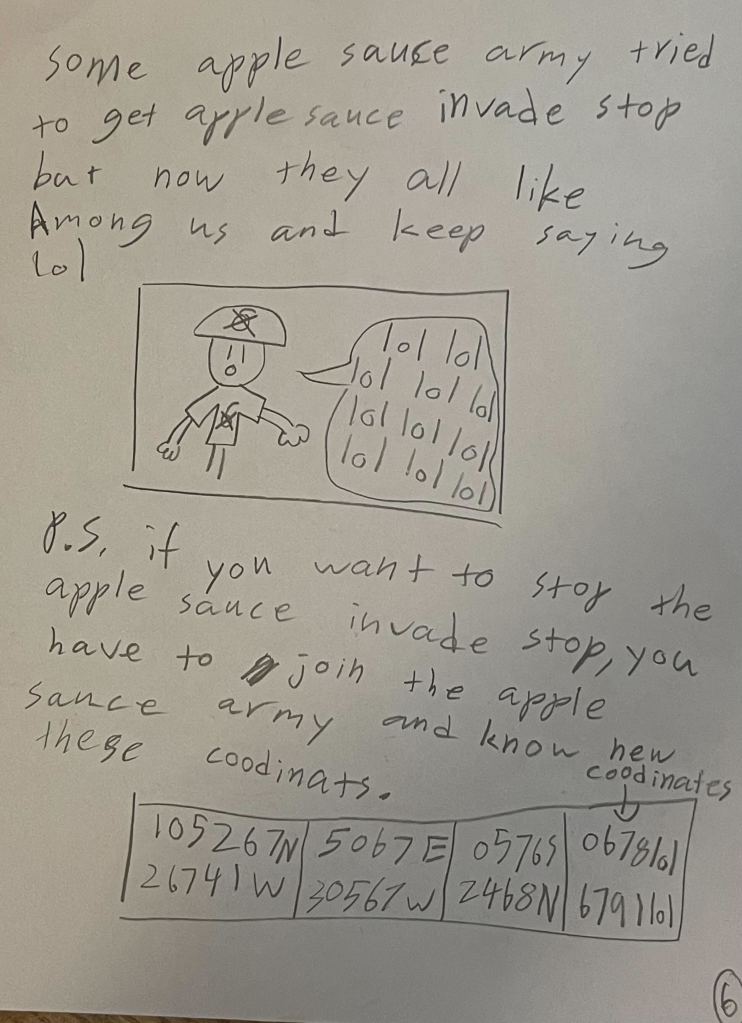 some apple sauce army tried
to get apple sauce invade stop
but now they all like
Among us and keep saying
lol
lol lol
lol lol lol
lol lol lol
lol lol lol
P.S. if you want to stop the
apple sauce invade stop, you
have to join the apple
sauce army and know
these coodinats.
new
coodinates
105267N 5067E 0576S 0678lol
26741W 30567W 2468N 6791lol
6